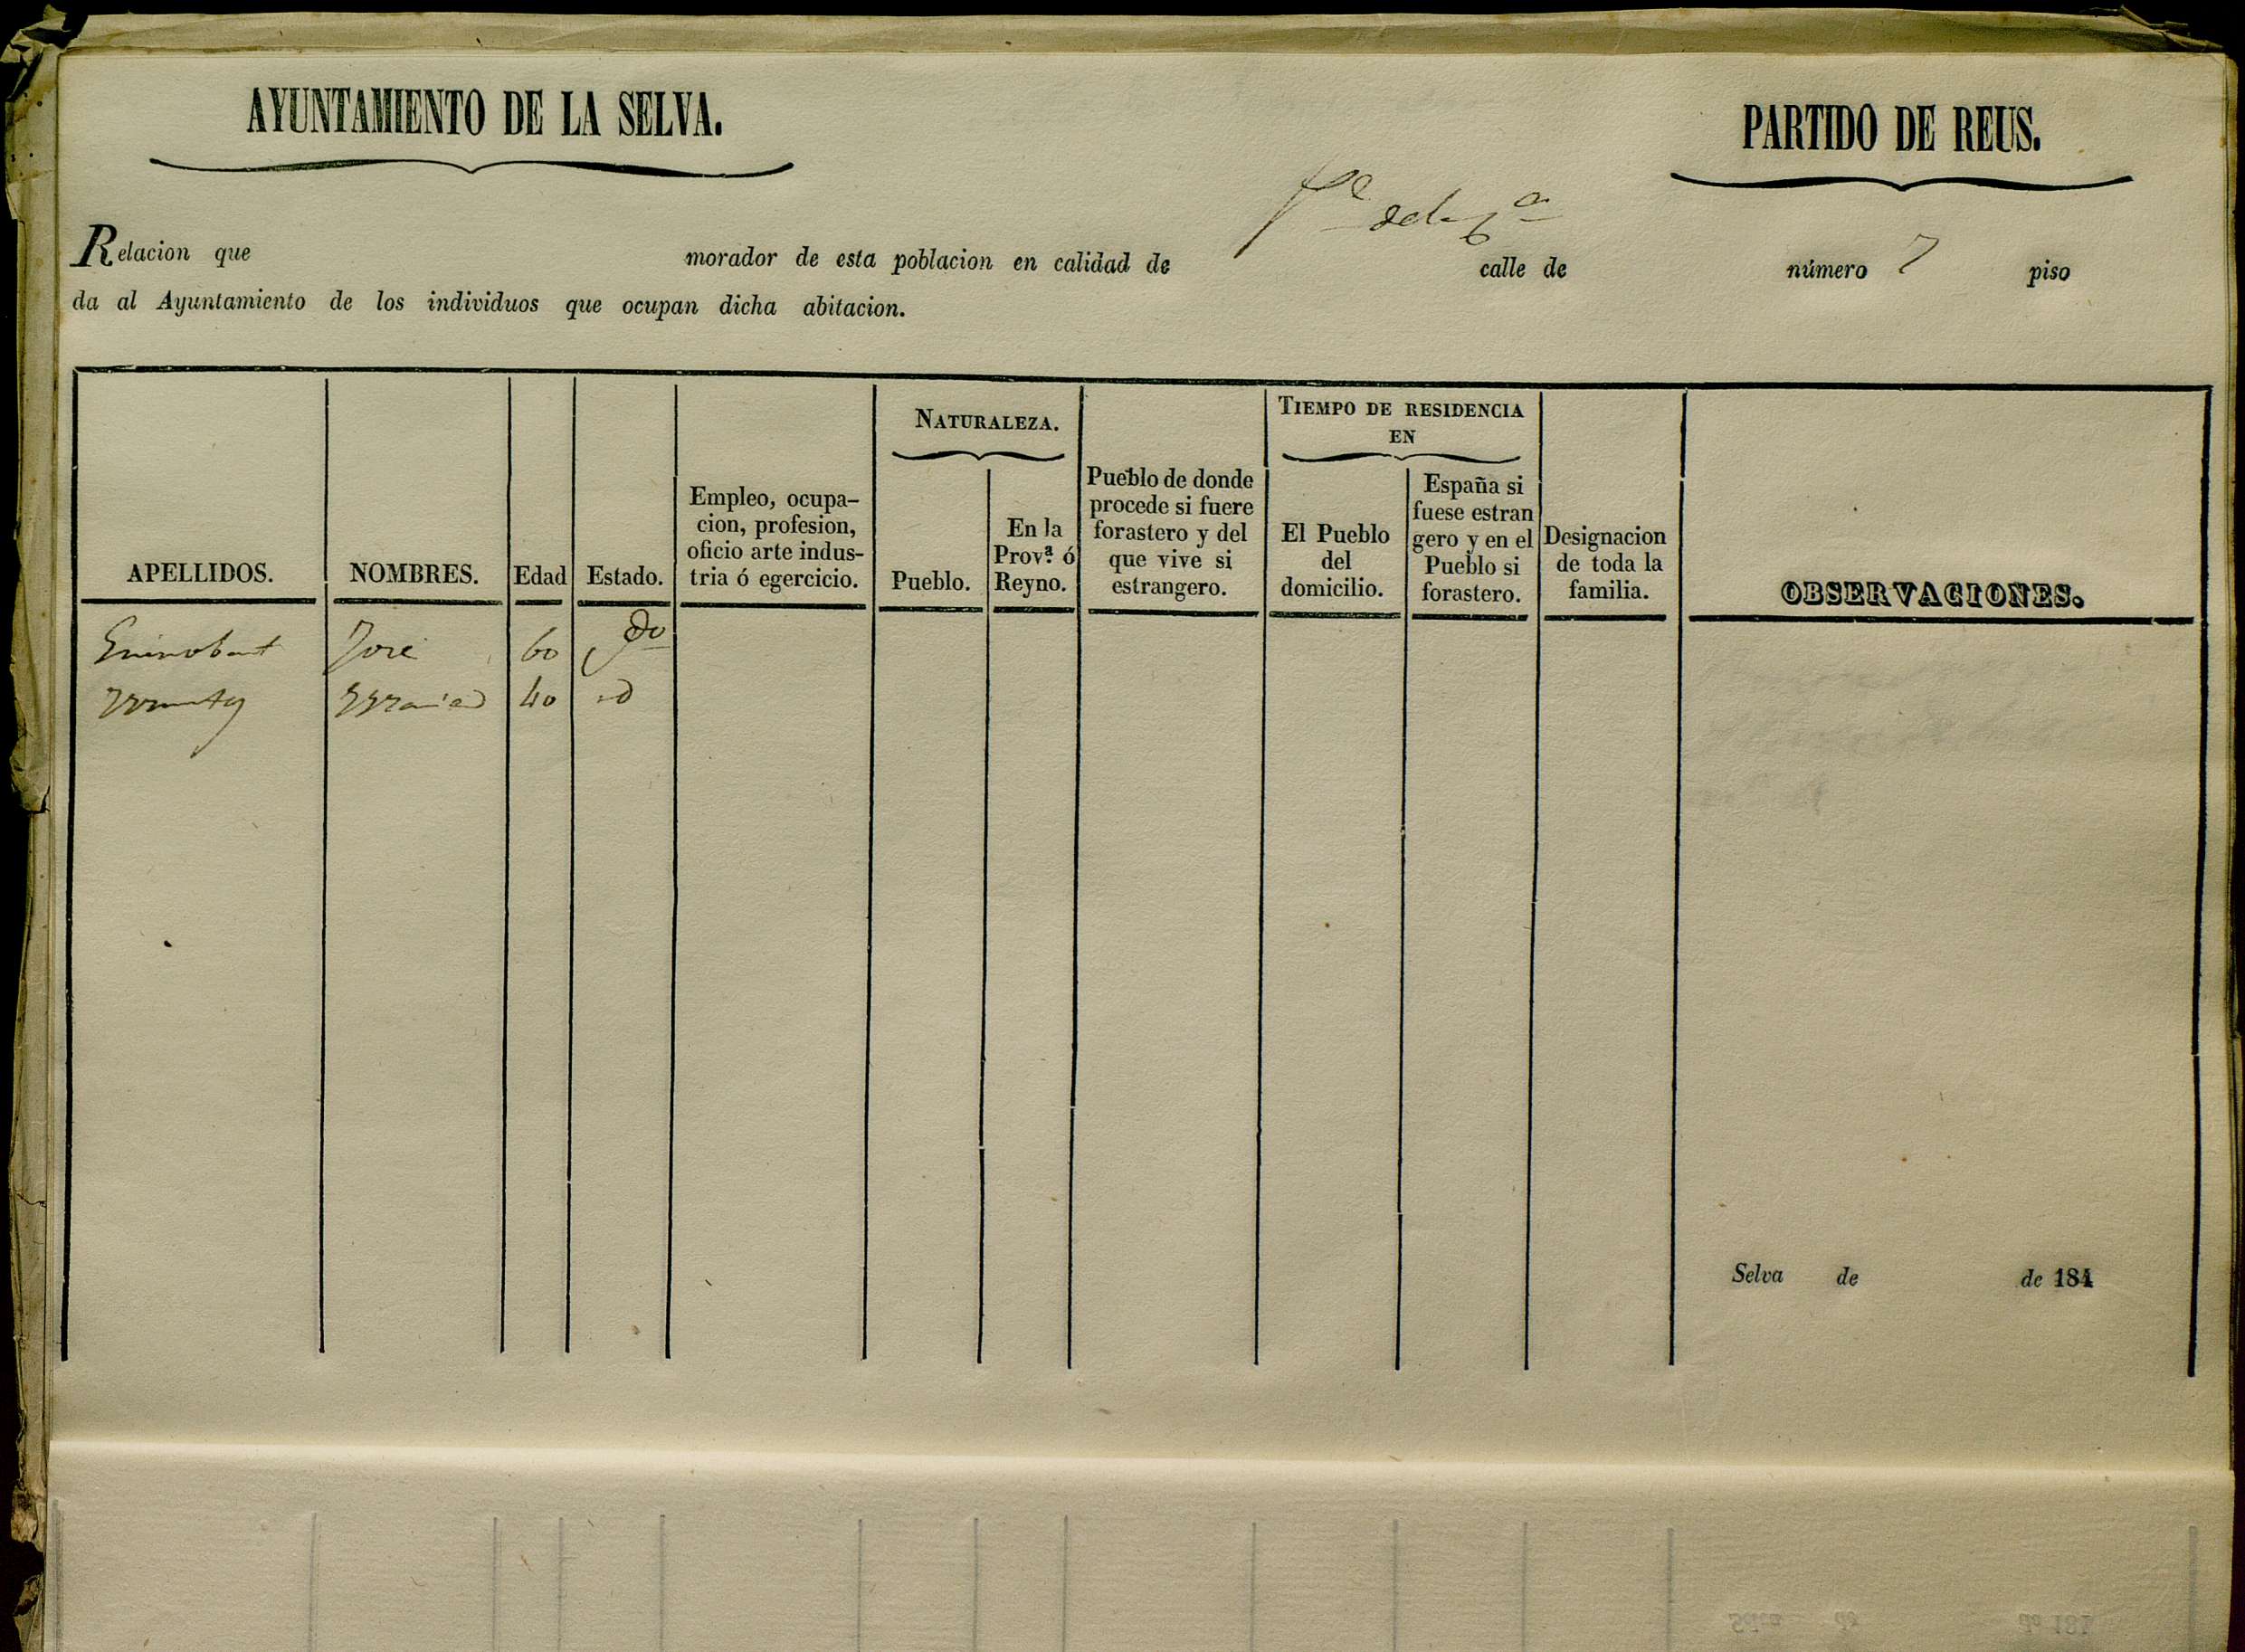 AYUNTAMIENTO DE LA SELVA.
PARTIDO DE REUS.
Relacion que morador de esta poblacion en calidad de calle de número 7 piso
da al Ayuntamiento de los individuos que ocupan dicha abitacion.
APELLIDOS.
NOMBRES.
Edad
Estado.
Empleo, ocupa-
cion, profesion,
oficio arte indus-
tria ó egercicio.
NATURALEZA.
Pueblo.
En la
Prov.ª ó
Reyno.
Pueblo de donde
procede si fuere
forastero y del
que vive si
estrangero.
TIEMPO DE RESIDENCIA
EN
El Pueblo
del
domicilio.
España si
fuese estran
gero y en el
Pueblo si
forastero.
Designacion
de toda la
familia.
OBSERVACIONES.
José 60
40 id
Selva de de 184